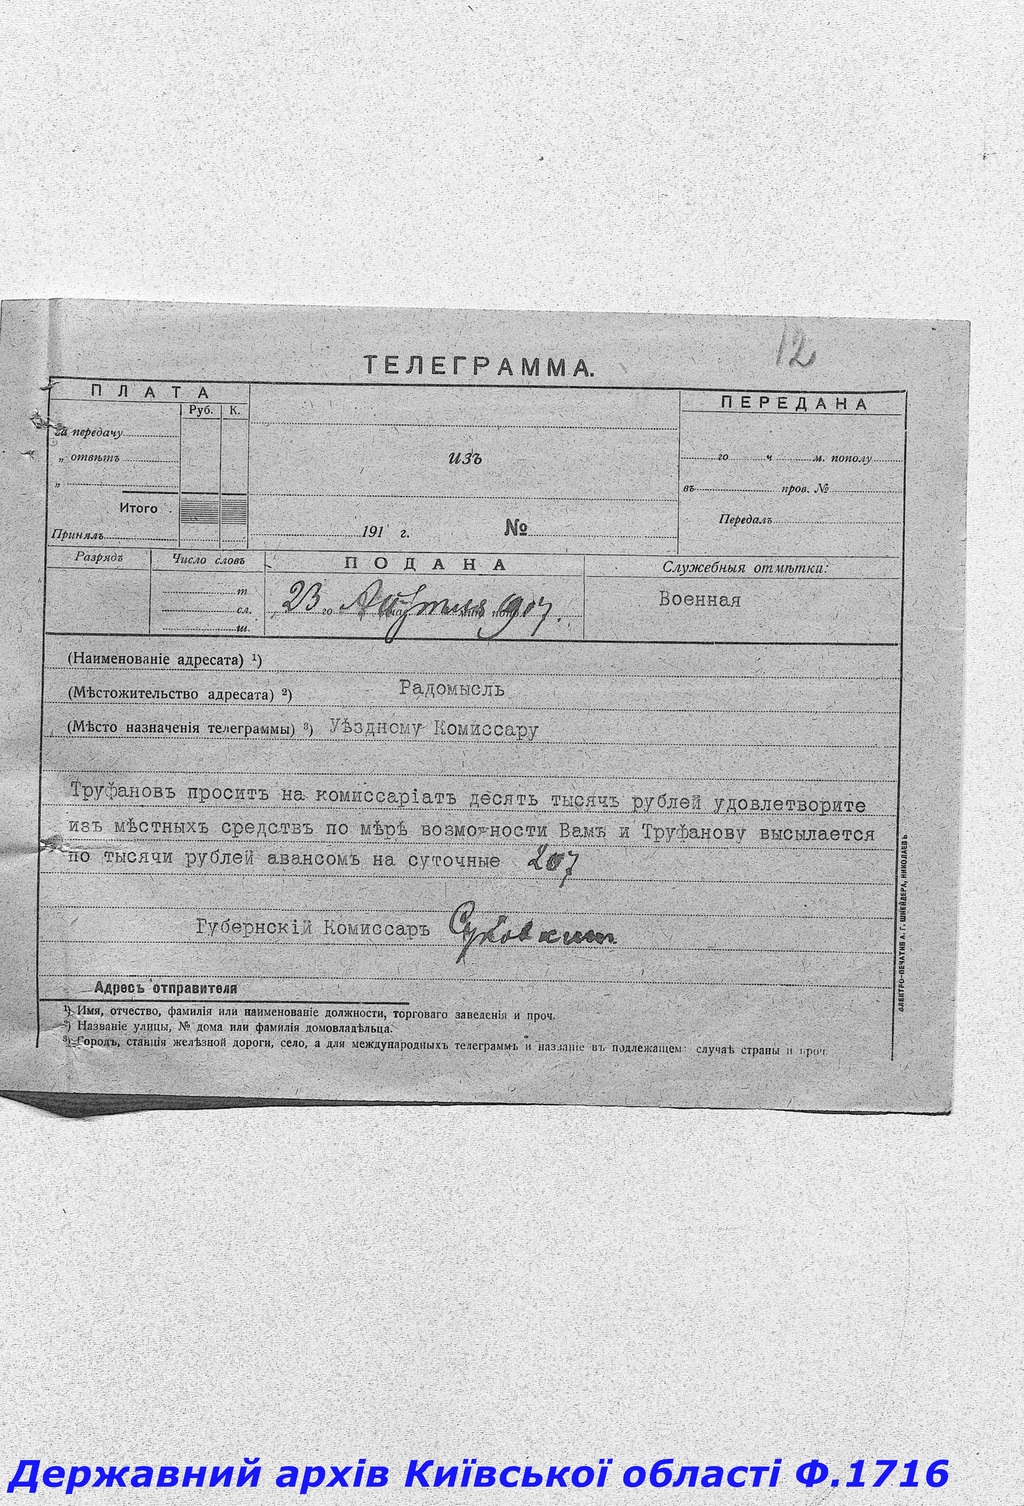 12
ТЕЛЕГРАММА.
ПЛАТА
Руб. К.
за передачу
„ отвѣтъ
„
Итого
Принялъ
изъ
191 г. №
ПЕРЕДАНА
го ч м. пополу
въ пров. №
Передалъ
Разрядъ
Число словъ
т
сл.
ш.
ПОДАНА
23 го Апреля 1907.
Служебныя отмѣтки:
Военная
(Наименованіе адресата) ¹)
(Мѣстожительство адресата) ²) Радомысль
(Мѣсто назначенія телеграммы) ³) Уѣздному Комиссару
Труфановъ просить на комиссаріатъ десять тысячъ рублей удовлетворите
изъ мѣстныхъ средствъ по мѣрѣ возможности Вамъ и Труфанову высылается
по тысячи рублей авансомъ на суточные 207
Губернскій Комиссаръ Суковкин
Адресъ отправителя
¹) Имя, отчество, фамилія или наименованіе должности, торговаго заведенія и проч.
²) Названіе улицы, № дома или фамилія домовладѣльца.
³) Городъ, станція желѣзной дороги, село, а для международныхъ телеграммъ и названіе въ подлежащемъ случаѣ страны и проч.
ЭЛЕКТРО-ПЕЧАТНЯ А. Г. ШНЕЙДЕРА, НИКОЛАЕВЪ
Державний архів Київської області Ф.1716